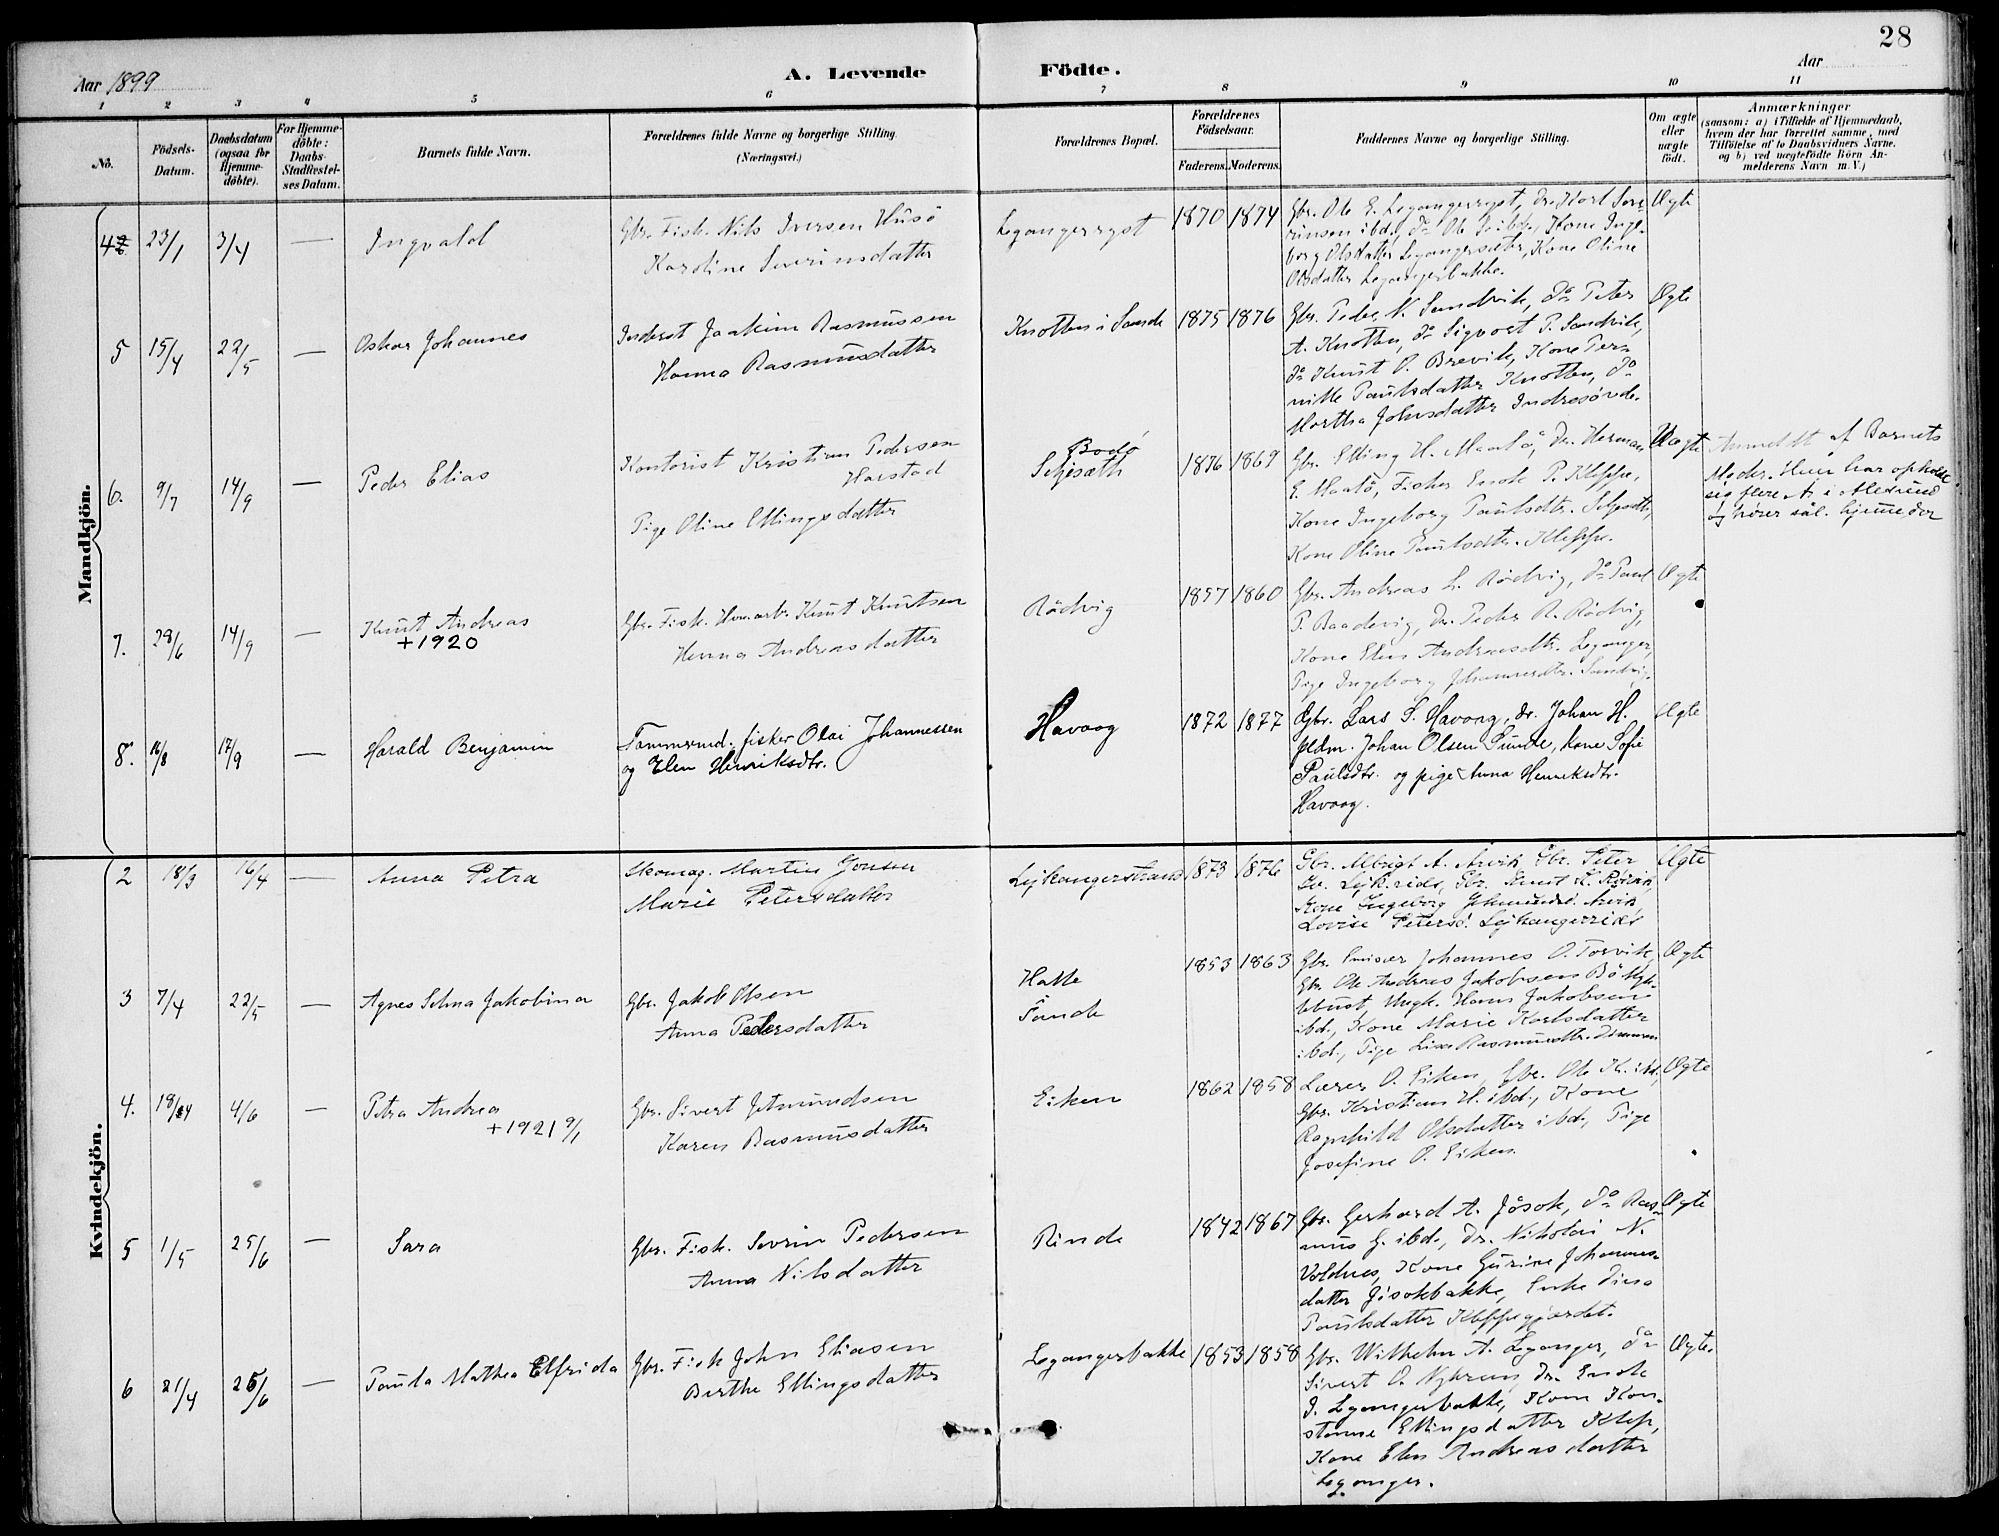 28
Aar 1899
A. Levende Födte.
Aar
1 2 3 4 5 6 7 8 9 10 11
No.
Födsels-Datum.
Daabsdatum (ogsaa for Hjemme-döbte).
For Hjemme-döbte: Daabs-Stadfæstel-ses Datum.
Barnets fulde Navn.
Forældrenes fulde Navne og borgerlige Stilling.
(Næringsvei.)
Forældrenes Bopæl.
Forældrenes Födselsaar.
Faderens. Moderens.
Faddernes Navne og borgerlige Stilling.
Om ægte eller uægte födt.
Anmærkninger
(saasom: a) i Tilfælde af Hjemmedaab,
hvem der har forrettet samme, med
Tilföielse af to Daabsvidners Navne.
og b) ved uægtefödte Börn An-
melderens Navn m. V.)
Mandkjön.
4 23/1 3/4 — Ingvald
Gbr. Fisk. Nils Iversen Husö
Karoline Severinsdatter
Legangerryst 1870 1874
Gbr. Ole E. Legangerryst, Dr. Karl Seve-
rinsen ibd., do Ole ibd., Kone Inge-
borg Olsdatter Legangersæter, Kone Oline
Olsdatter Legangerbakke.
Ægte
5 15/4 22/5 — Oskar Johannes
Inderst Joakim Rasmussen
Hanna Rasmusdatter
Knotten i Sande 1875 1876
Gbr. Peder N. Sandvik, do Peter
A. Knotten, do Sigvart P. Sandvik,
do Knut O. Brevik, Kone Per-
nille Paulsdatter Knotten, do
Martha Johnsdatter Indresövde.
Ægte
6. 9/7 14/9 — Peder Elias
Kontorist Kristian Pedersen
Harstad
Pige Oline Ellingsdatter
Bodö
Seljesæth 1876 1869
Gbr. Elling H. Maalö, Dr. Herman
E. Maalö, Fisker Enok P. Kleppe,
Kone Ingeborg Paulsdtr. Seljesæth,
Kone Oline Paulsdtr. Kleppe.
Uægte
Anmeldt af Barnets
Moder. Hun har opholdt
sig flere År i Alesund
og hører sål. hjemme der
7. 28/6 14/9 — Knut Andreas
+1920
Gbr. Fisk. Knut Knutsen
Hanna Andreasdatter
Rödvig 1857 1860
Gbr. Andreas L. Rödvig, do Paul
P. Baadsvig, Dr. Peder R. Rödvig,
Kone Elen Andreasdtr. Leganger,
Pige Ingeborg Johannesdtr. Sandvig.
Ægte
8. 16/8 17/9 — Harald Benjamin
Tømmermd. fisker Olai Johannessen
og Elen Henriksdtr.
Havaag 1872 1877
Gbr. Lars S. Havaag, dr. Johan H.
pldm. Johan Olsen Sunde, kone Sofie
Paulsdtr. og pige Anna Henriksdtr.
Havaag.
Ægte
Kvindekjön.
2 18/3 16/4 — Anna Petra
Skomag. Martin Jonsen
Marie Petersdatter
Lejkangerstrand 1873 1876
Gbr. Albrigt A. Arvik, Gbr. Peter
Gbr. Knut K. Rörvik,
Kone Ingeborg Arvik,
Lovise Petersd.
Ægte
3 7/4 22/5 — Agnes Selma Jakobina
Gbr. Jakob Olsen
Anna Pedersdatter
Halle
Sande 1853 1863
Gbr. Johannes O. Torvik,
Gbr. Ole Andreas Jakobsen
Ungk. Hans Jakobsen
ibd., Kone Marie Karlsdatter
ibd., Pige Lise Rasmusdtr.
Ægte
4. 18/4 4/6 — Petra Andrea
+1921 9/1
Gbr. Sivert Jetmundsen
Karen Rasmusdatter
Eiken 1862 1858
Lærer O. Eiken, Gbr. Ole K. ibd,
Gbr. Kristian H. ibd., Kone
Ragnhild Olsdatter ibd., Pige
Josefine O. Eiken.
Ægte
5 1/5 25/6 — Sara
Gbr. Fisk. Sevrin Pedersen
Anna Nilsdatter
Rinde 1842 1867
Gbr. Gerhard A. Jösok, do Ras-
mus G. ibd., Dr. Nikolai N.
Voldnes, Kone Gurine Johannes-
datter Jösokbakke, Enke Dina
Paulsdatter Kleppegjærdet.
Ægte
6 21/4 25/6 — Paula Mathea Elfrida
Gbr. Fisk John Eliasen
Berthe Ellingsdatter
Legangerbakke 1853 1858
Gbr. Wilhelm A. Leganger, do
Sivert O. Nykrem, Dr. Enok
J. Legangerbakke, Kone Kon-
stanse Ellingsdatter Klep,
Kone Elen Andreasdatter
Leganger.
Ægte.